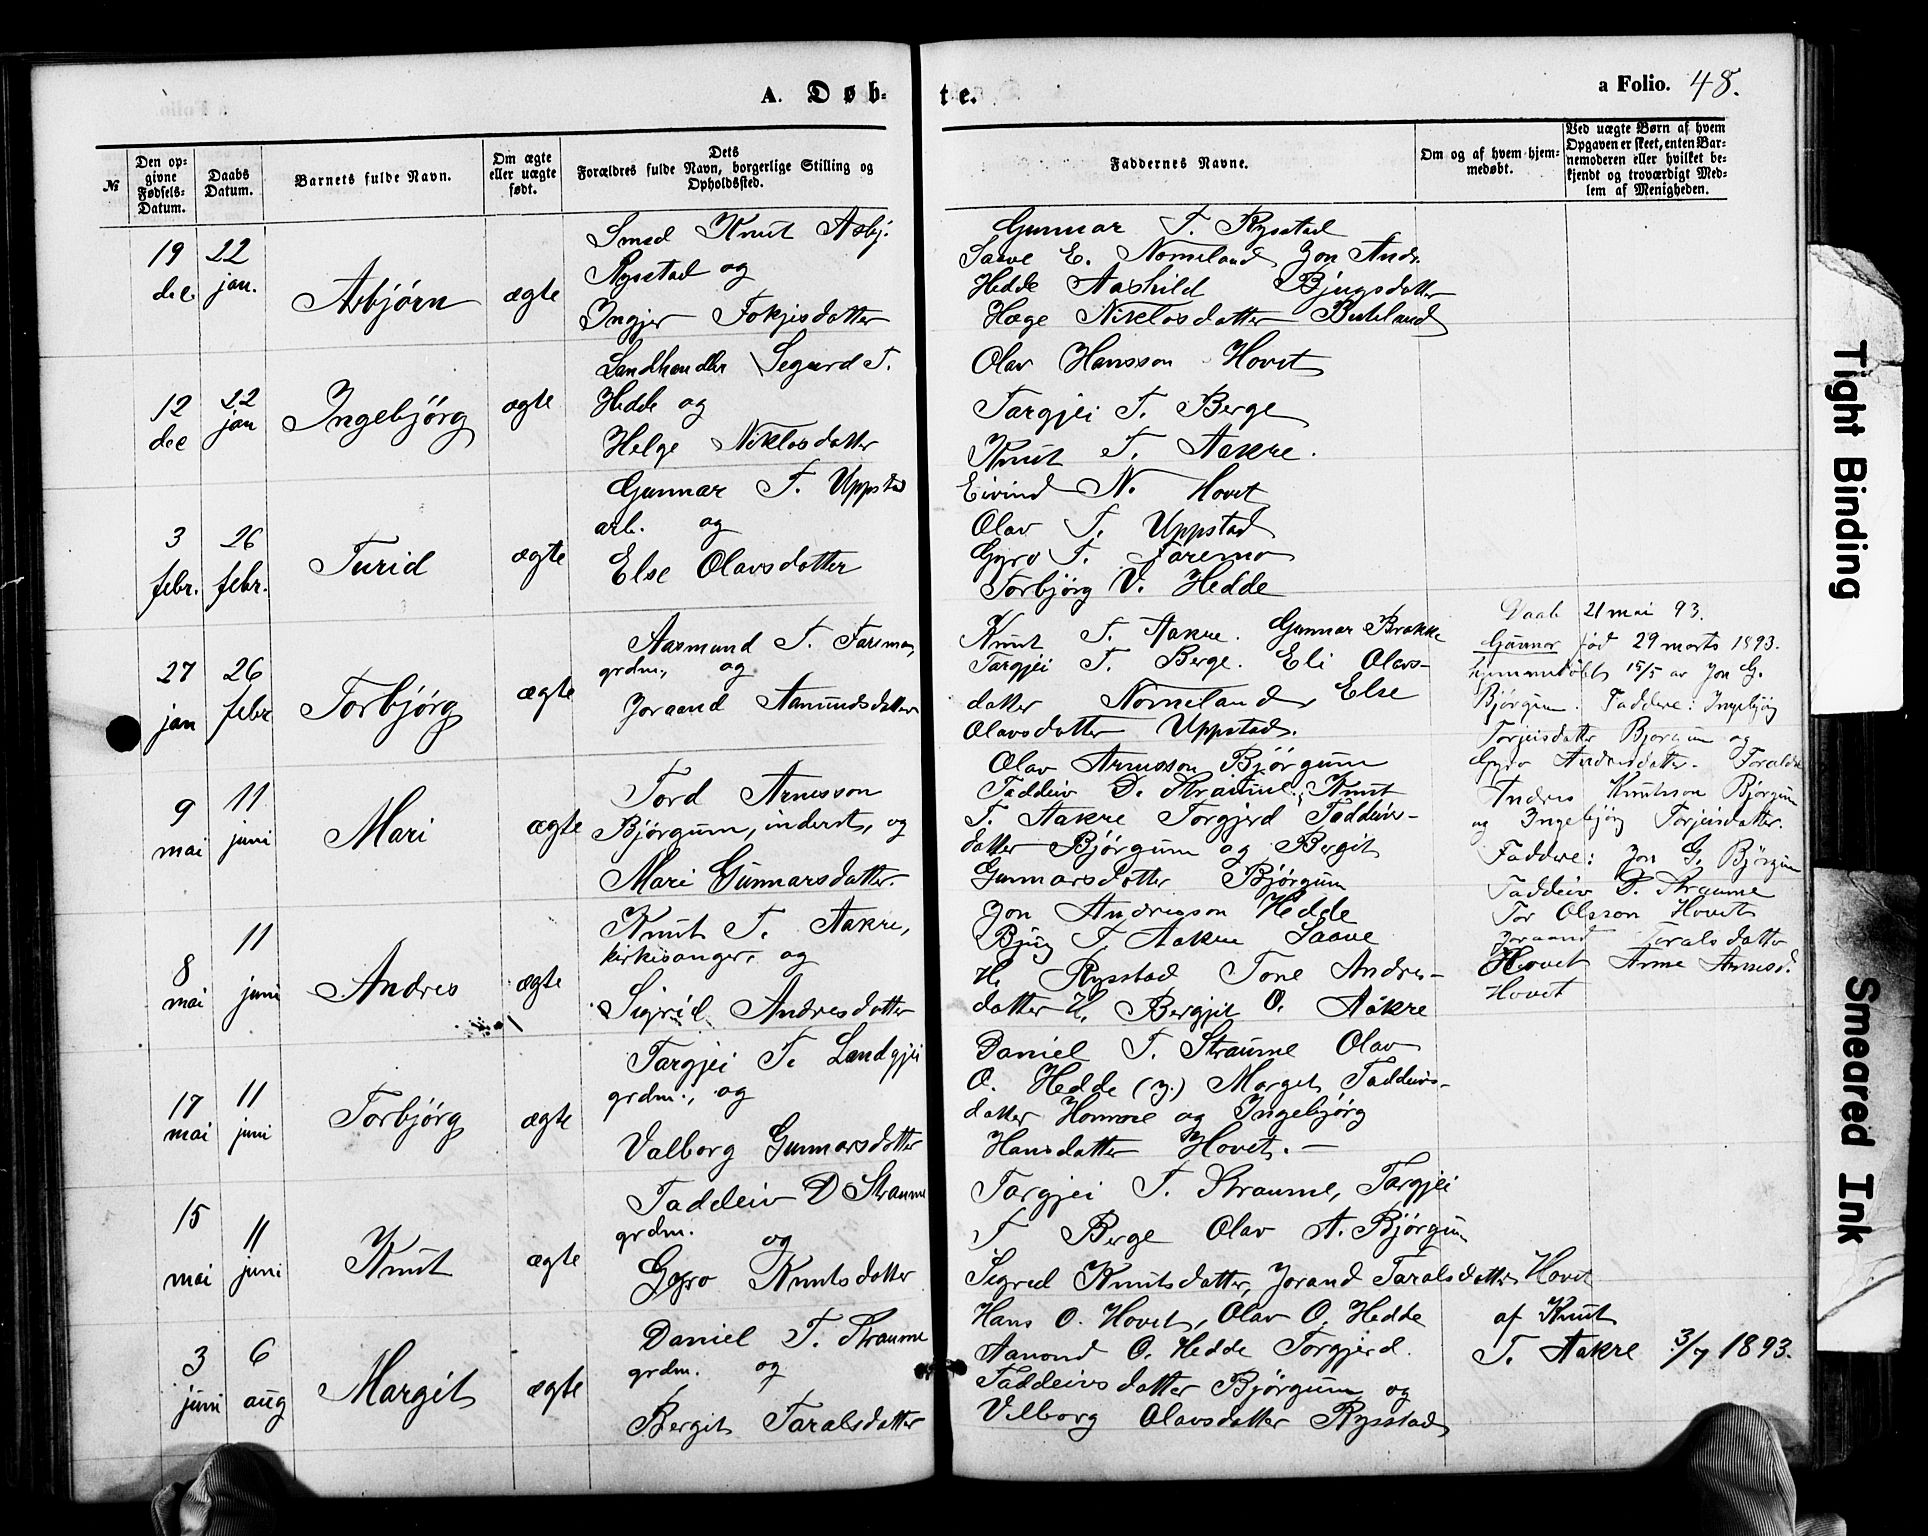 A. Døb- te.
a Folio. 48.
№
Den opgivne Fødsels-Datum.
Daabs Datum.
Barnets fulde Navn.
Om ægte eller uægte født.
Dets Forældres fulde Navn, borgerlige Stilling og Opholdssted.
Faddernes Navne.
Om og af hvem hjemmedøbt.
Ved uægte Børn af hvem Opgaven er skeet, enten Barnemoderen eller hvilket bekjendt og troværdigt Medlem af Menigheden.
19 dec
22 jan.
Asbjørn
ægte
Smed Knut Asbj.
Rysstad og
Ingjer Fokjesdatter
Gunnar T. Rysstad
Saave E. Nomeland, Jon Andr.
Hedde Aashild Bjugsdatter
Hæge Niklosdatter
12 dec
22 jan
Ingebjörg
ægte
Landhandler Segurd T.
Hedde og
Helge Niklosdatter
Olav Hansson Hovet
Targjei T. Berge
Knut T. Aakre.
Eivind N. Hovet
3 febr.
26 febr.
Turid
ægte
Gunnar T. Uppstad
arb. og
Else Olavsdatter
Olav T. Uppstad
Gyro T. Faremo
Torbjörg V. Hedde
27 jan
26 febr
Torbjörg
ægte
Aasmund T. Faremo,
grdm., og
Joraand Aamundsdatter
Knut T. Aakre. Gunnar Brokke
Targjei T. Berge. Eli Olavs-
datter Nomeland, Else
Olavsdatter Uppstad.
9 mai
11 juni
Mari
ægte
Tord Arnesson
Bjørgum, inderst, og
Mari Gunnarsdatter.
Olav Arnesson Bjørgum
Taddeiv D. Straume, Knut
T. Aakre Torgjerd Taddeivs-
datter Bjørgum og Bergit
Gunnarsdatter Bjørgum
8 mai
11 juni
Andres
ægte
Knut T. Aakre,
kirkesanger, og
Sigrid Andresdatter
Jon Andresson Hedde
Bjug T. Aakre Saave
H. Rysstad Tone Andres-
datter H. Bergjit O. Aakre
17 mai
11 juni
Torbjörg
ægte
Targjei T. Landgjei
grdm., og
Valborg Gunnarsdatter
Daniel T. Straume Olav
O. Hedde (y.) Margit Taddeivs-
datter Homme og Ingebjörg
Hansdatter Hovet. —
15 mai
11 juni
Knut
ægte
Taddeiv D Straume
grdm. og
Gyro Knutsdatter
Targjei T. Straume, Targjei
T Berge Olav A. Bjørgum
Sigrid Knutsdatter, Jorand Taralsdatter Hovet
3 juni
6 aug
Margit
ægte
Daniel T. Straume
grdm. og
Bergit Taralsdatter
Hans O. Hovet, Olav O. Hedde
Aamond O. Hedde Torgjerd.
Taddeivsdatter Bjørgum og
Vilborg Olavsdatter Rysstad
af Knut
T. Aakre 3/7 1893.
Daab 21 mai 93.
Gunnar fød 29 marts 1893.
hjemmedøbt 15/5 av Jon G.
Bjørgum. Faddere: Ingebjörg
Torjeisdatter Bjørgum og
Gyro Andresdatter. Foreldre
Andres Knutsson Bjørgum
og Ingebjörg Torjeisdatter.
Faddere: Jon G. Bjørgum
Taddeiv D. Straume
Tor Olsson Hovet
Joraand Taralsdatter
Hovet Anne Arnesd.
Hovet
Tight Binding
Smeared Ink